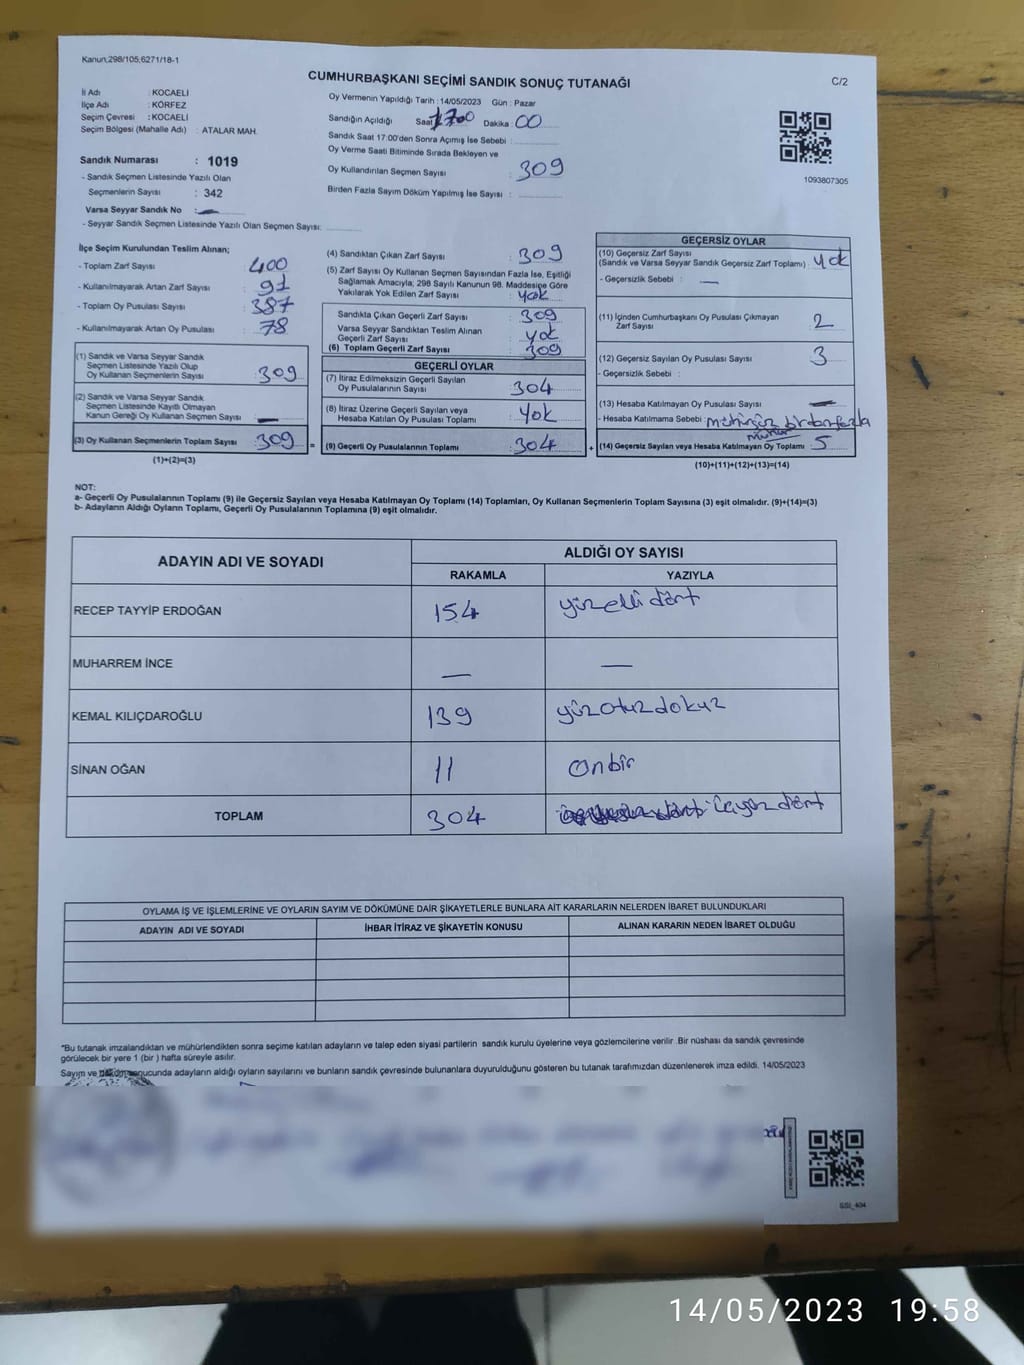 Kanun:298/105,6271/18-1
CUMHURBAŞKANI SEÇİMİ SANDIK SONUÇ TUTANAĞI
C/2
İl Adı : KOCAELİ
İlçe Adı : KÖRFEZ
Seçim Çevresi : KOCAELİ
Seçim Bölgesi (Mahalle Adı) : ATALAR MAH.
Sandık Numarası : 1019
- Sandık Seçmen Listesinde Yazılı Olan
Seçmenlerin Sayısı : 342
Varsa Seyyar Sandık No : —
- Seyyar Sandık Seçmen Listesinde Yazılı Olan Seçmen Sayısı:
Oy Vermenin Yapıldığı Tarih : 14/05/2023 Gün : Pazar
Sandığın Açıldığı Saat 1700 Dakika : 00
Sandık Saat 17:00'den Sonra Açımış İse Sebebi :
Oy Verme Saati Bitiminde Sırada Bekleyen ve
Oy Kullandırılan Seçmen Sayısı : 309
Birden Fazla Sayım Döküm Yapılmış İse Sayısı :
1093807305
İlçe Seçim Kurulundan Teslim Alınan;
- Toplam Zarf Sayısı 400
- Kullanılmayarak Artan Zarf Sayısı : 91
- Toplam Oy Pusulası Sayısı : 387
- Kullanılmayarak Artan Oy Pusulası : 78
(1) Sandık ve Varsa Seyyar Sandık
Seçmen Listesinde Yazılı Olup
Oy Kullanan Seçmenlerin Sayısı : 309
(2) Sandık ve Varsa Seyyar Sandık
Seçmen Listesinde Kayıtlı Olmayan
Kanun Gereği Oy Kullanan Seçmen Sayısı : —
(3) Oy Kullanan Seçmenlerin Toplam Sayısı : 309
(1)+(2)=(3)
(4) Sandıktan Çıkan Zarf Sayısı : 309
(5) Zarf Sayısı Oy Kullanan Seçmen Sayısından Fazla İse, Eşitliği
Sağlamak Amacıyla; 298 Sayılı Kanunun 98. Maddesine Göre
Yakılarak Yok Edilen Zarf Sayısı : Yok
Sandıkta Çıkan Geçerli Zarf Sayısı : 309
Varsa Seyyar Sandıktan Teslim Alınan
Geçerli Zarf Sayısı : yok
(6) Toplam Geçerli Zarf Sayısı : 309
GEÇERLİ OYLAR
(7) İtiraz Edilmeksizin Geçerli Sayılan
Oy Pusulalarının Sayısı : 304
(8) İtiraz Üzerine Geçerli Sayılan veya
Hesaba Katılan Oy Pusulası Toplamı : Yok
= (9) Geçerli Oy Pusulalarının Toplamı : 304
GEÇERSİZ OYLAR
(10) Geçersiz Zarf Sayısı
(Sandık ve Varsa Seyyar Sandık Geçersiz Zarf Toplamı) : yok
- Geçersizlik Sebebi : —
(11) İçinden Cumhurbaşkanı Oy Pusulası Çıkmayan
Zarf Sayısı : 2
(12) Geçersiz Sayılan Oy Pusulası Sayısı : 3
- Geçersizlik Sebebi :
(13) Hesaba Katılmayan Oy Pusulası Sayısı : —
- Hesaba Katılmama Sebebi : mühürsüz birdenfazla
mühür
+ (14) Geçersiz Sayılan veya Hesaba Katılmayan Oy Toplamı : 5
(10)+(11)+(12)+(13)=(14)
NOT:
a- Geçerli Oy Pusulalarının Toplamı (9) ile Geçersiz Sayılan veya Hesaba Katılmayan Oy Toplamı (14) Toplamları, Oy Kullanan Seçmenlerin Toplam Sayısına (3) eşit olmalıdır. (9)+(14)=(3)
b- Adayların Aldığı Oyların Toplamı, Geçerli Oy Pusulalarının Toplamına (9) eşit olmalıdır.
ADAYIN ADI VE SOYADI ALDIĞI OY SAYISI
RAKAMLA YAZIYLA
RECEP TAYYİP ERDOĞAN 154 yüzellidört
MUHARREM İNCE — —
KEMAL KILIÇDAROĞLU 139 yüzotuzdokuz
SİNAN OĞAN 11 onbir
TOPLAM 304 üçyüzdört
OYLAMA İŞ VE İŞLEMLERİNE VE OYLARIN SAYIM VE DÖKÜMÜNE DAİR ŞİKAYETLERLE BUNLARA AİT KARARLARIN NELERDEN İBARET BULUNDUKLARI
ADAYIN ADI VE SOYADI İHBAR İTİRAZ VE ŞİKAYETİN KONUSU ALINAN KARARIN NEDEN İBARET OLDUĞU
*Bu tutanak imzalandıktan ve mühürlendikten sonra seçime katılan adayların ve talep eden siyasi partilerin sandık kurulu üyelerine veya gözlemcilerine verilir .Bir nüshası da sandık çevresinde
görülecek bir yere 1 (bir ) hafta süreyle asılır.
Sayım ve sonucunda adayların aldığı oyların sayılarını ve bunların sandık çevresinde bulunanlara duyurulduğunu gösteren bu tutanak tarafımızdan düzenlenerek imza edildi. 14/05/2023
SSİ_404
14/05/2023 19:58